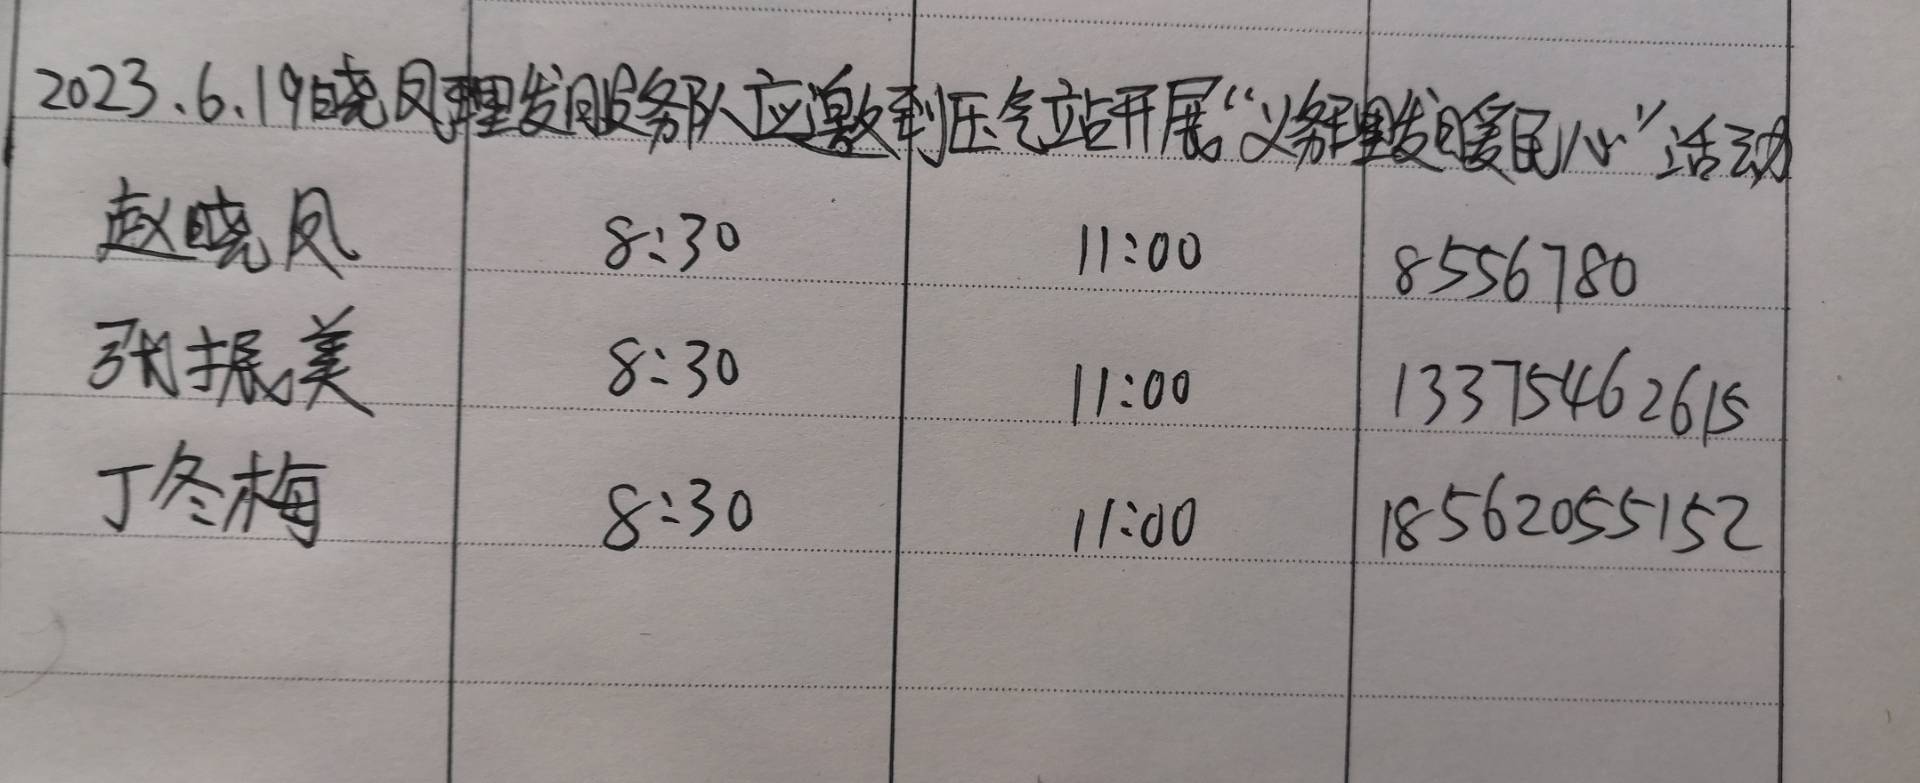 2023.6.19晓凤理发服务队应邀到压气站开展“义务理发暖民心”活动
赵晓凤 8:30 11:00 8556780
张振美 8:30 11:00 13375462615
丁冬梅 8:30 11:00 18562055152